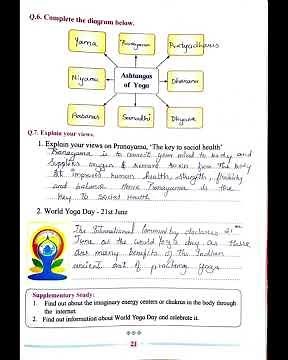 Q.6. Complete the diagram below.
Yama
Pranayama
Pratyadharis
Niyama
Ashtangas
of Yoga
Dharana
Aasanas
Samadhi
Dhyana
Q.7. Explain your views.
1. Explain your views on Pranayama, 'The key to social health'
Pranayama is to connect your mind to body and
supplies oxygen & remove toxin from the body
It improves human health, strength, flexibility
and balance. Hence Pranayama is the
key to social health
2. World Yoga Day - 21st June
The International Community declares 21st
June as the world Yoga day as there
are many benefits of the Indian
ancient art of practicing yoga
Supplementary Study:
1. Find out about the imaginary energy centers or chakras in the body through
the internet.
2. Find out information about World Yoga Day and celebrate it.
21